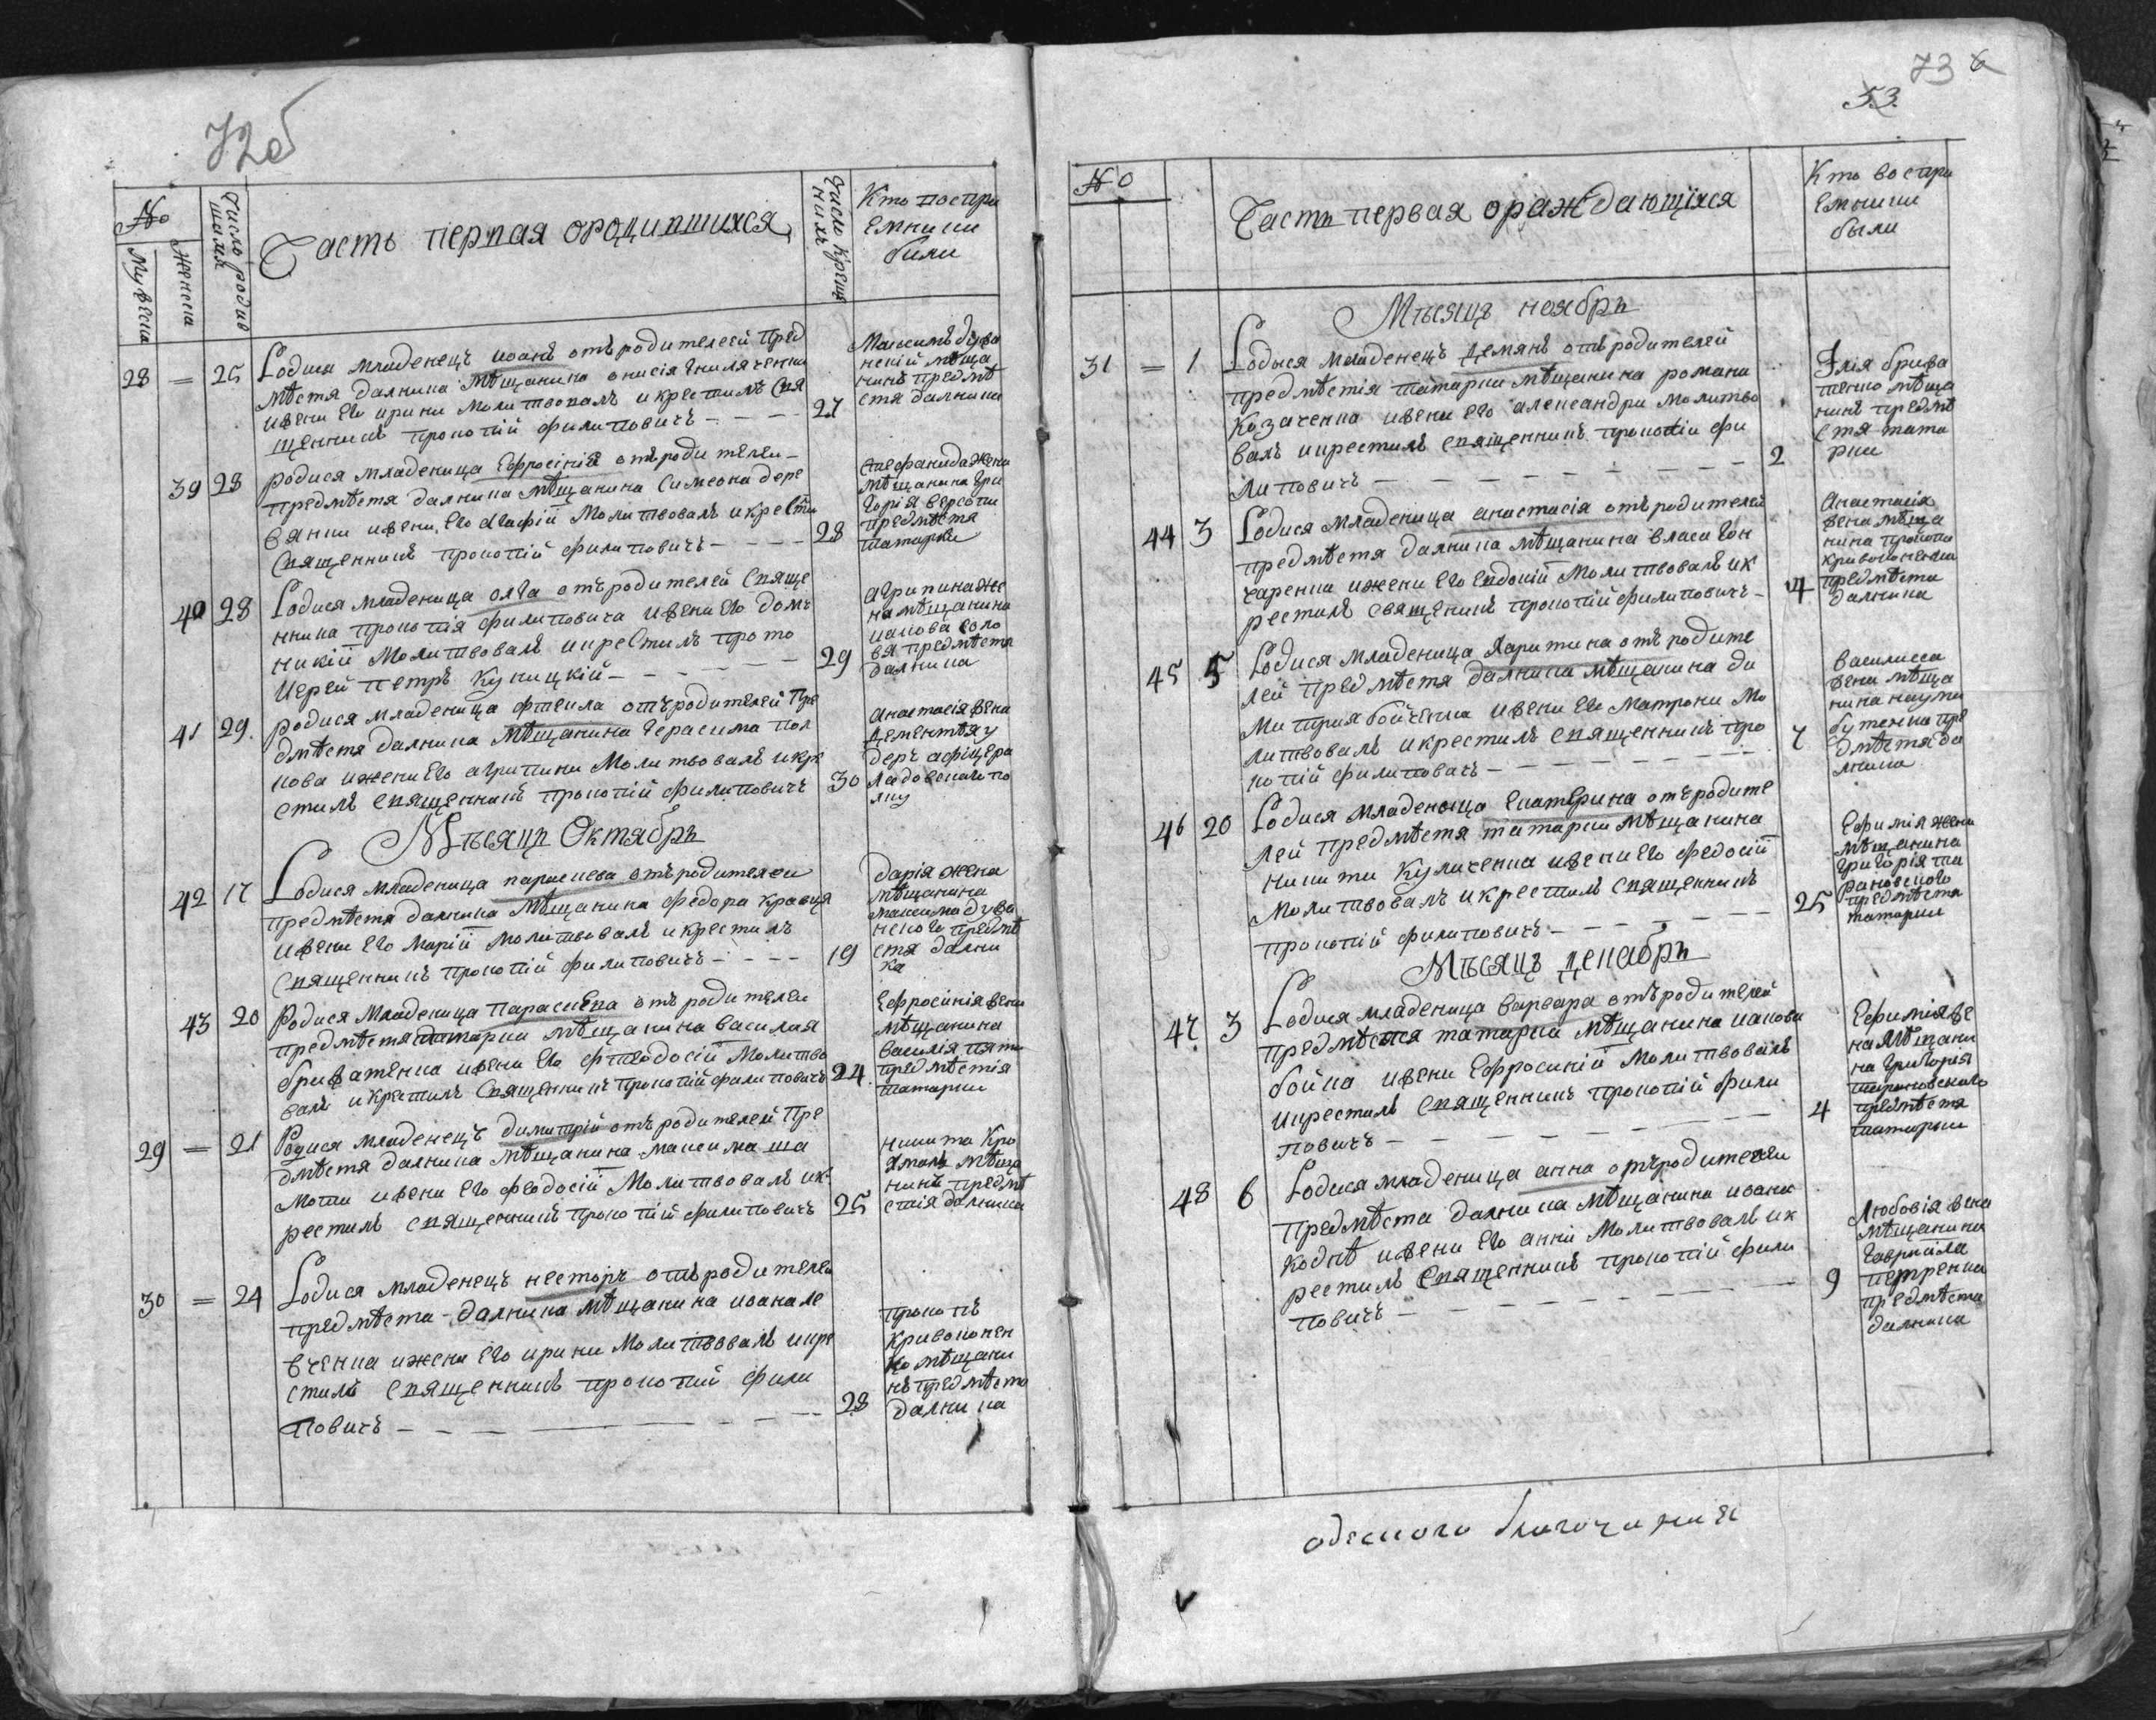 72об
№
Мужеска
Женска
Число родившихся
Часть первая ородившихся
Число крещенихъ
Кто воспри
Емники
были
28 = 25 Родися младенецъ иоанъ отъ родителей пред
мѣстя далника мѣщанина онисія
ижени Его ирини молитвовалъ икрестилъ Свя
щенникъ прокопій филиповичъ - - - - 27
Максимъ дува
нский мѣща
нинъ предмѣ
стя далника
39 28 родися младеница Ефросінія отъ родителей
предмѣстя далника мѣщанина Симеона дере
вянки ижени Его Агафій Молитвовалъ икрести
Священникъ прокопій филиповичъ - - - - 28
стефанида жена
мѣщанина Гри
горія версоти
предмѣстя
татарки
40 28 Родися младеница олга отъ родителей Свяще
нника прокопія филиповича ижени Его домъ
никій Молитвовалъ икрестилъ прото
Иерей петръ Куницкій - - - - - 29
агрипина же
на мѣщанина
иакова соло
вя предмѣстя
далника
41 29. родися младеница фтекла отъ родителей пре
дмѣстя далника Мѣщанина Герасима пол
кова ижени Его агрипини Молитвовалъ икре
стилъ священникъ прокопій филиповичъ 30
анастасія жена
дементъя у
деръ афіцера
ладовскаго по
лку
Мѣсяцъ Октябръ
42 17 Родися младеница параскева отъ родителей
предмѣстя далника Мѣщанина федора Кравця
ижени Его Марій молитвовалъ икрестилъ
Священникъ прокопій филиповичъ - - - - 19
дарія жена
мѣщанина
максима дува
нского предмѣ
стя дални
ка
43 20 Родися Младеница Параскева отъ родителей
предмѣстя татарки мѣщанина василия
бриватенка ижени Его фтеодосій Молитво
валъ икрестилъ Священникъ прокопій филиповичъ 24.
Ефросинія жена
мѣщанина
василія
предмѣстія
татарки
29 = 21 Родися младенецъ димитрій отъ родителей Пре
дмѣстя далника мѣщанина максима ша
моти ижени Его феодосій Молитвовалъ ик
рестилъ священникъ прокопій филиповичъ 25
никита Кро
мѣща
нинъ предмѣ
стія далника
30 = 24 Родися младенецъ несторъ отъ родителей
предмѣста далника мѣщанина иоана ле
вченка ижени Его ирини Молитвовалъ икре
стилъ священникъ прокопий фили
повичъ - - - - - - - 28
прокопъ
Кривоконен
ко мѣщани
нъ предмѣста
далника
73
53.
№
Часть первая ораждающіхся
Кто воспри
Емники
были
Мѣсяцъ ноябръ
31 = 1 Родися младенецъ демянъ отъ родителей
предмѣстія татарки мѣщанина романа
Козаченка ижени Его александри молитво
валъ икрестилъ священникъ прокопіи фи
липовичъ - - - - - - - 2
Ілія брива
тенко мѣща
нинъ предмѣ
стя тата
рки
44 3 Родися младеница анастасія отъ родителей
предмѣстя далника мѣщанина власа Гон
чаренка ижени Его Евдокій Молитвовалъ ик
рестилъ священикъ прокопій филиповичъ - 4
Анастасія
жена мѣща
нина прокопа
кривоконенка
предмѣста
далника
45 5 Родися Младеница Харитина отъ родите
лей предмѣстя далника мѣщанина ди
митрия бойченка ижени Его Матрони мо
литвовалъ икрестилъ священникъ про
копій филиповичъ - - - - - - - 7
василисса
жена мѣща
нина наума
бутенка пре
дмѣстя да
лника
46 20 Родися младеница екатерина отъ родите
лей предмѣстя татарки мѣщанина
никити Куличенка ижени Его федосій
Молитвовалъ икрестилъ священникъ
прокопій филиповичъ - - - - - - - 25
Ефимія жена
мѣщанина
григорія ти
рановского
предмѣстя
татарки
Мѣсяцъ декабръ
47 3 Родися младеница варвара отъ родителей
предмѣстя татарки мѣщанина иакова
бойка ижени Ефросиній Молитвовалъ
икрестилъ священникъ прокопій фили
повичъ - - - - - - - 4
Ефимія же
на Мѣщани
на григория
тирановского
предмѣстя
татарки
48 6 Родися младеница анна отъ родителей
предмѣста далника мѣщанина иоана
ижени Его анни Молитвовалъ ик
рестилъ священникъ прокопій фили
повичъ - - - - - - - 9
Любовія жена
мѣщанина
гавриила
петренка
предмѣста
далника
одескаго благочиния